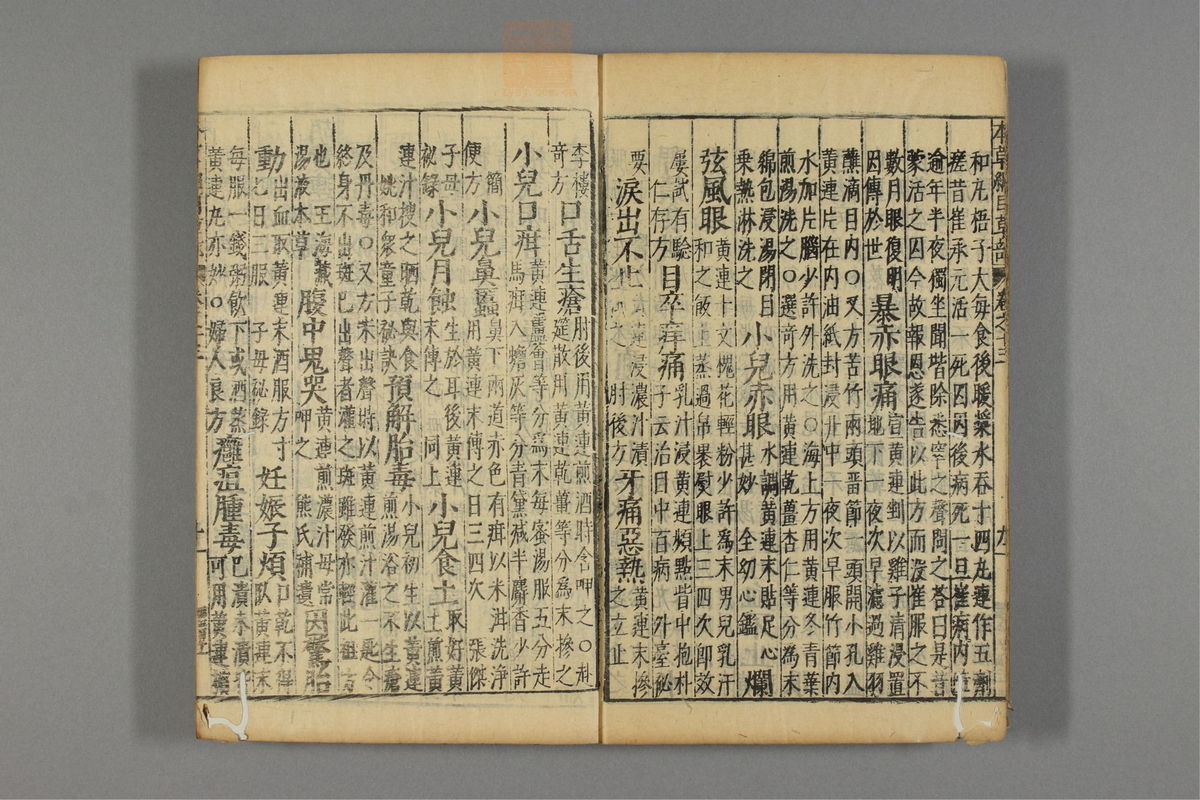 本草綱目草部 卷之十三
和丸梧子大每食後暖漿水吞十四丸連作五劑
瘥昔崔承元活一死囚囚後病死一旦崔病內障
逾年半夜獨坐聞階除悉窣之聲問之答曰是昔
蒙活之囚今故報恩遂告以此方而沒崔服之不
數月眼復明 暴赤眼痛 宣黃連剉以雞子清浸置地下一夜次早濾過雞羽
因傳於世
蘸滴目內○又方苦竹兩頭畱節一頭開小孔入
黃連片在內油紙封浸井中一夜次早服竹節內
水加片腦少許外洗之○海上方用黃連冬青葉
煎湯洗之○選奇方用黃連乾薑杏仁等分為末
綿包浸湯閉目乘熱淋洗之 小兒赤眼 水調黃連末貼足心甚妙 全幼心鑑 爛
弦風眼 黃連十文槐花輕粉少許為末男兒乳汁和之飯上蒸過帛裹熨眼上三四次即效
屢試有驗 仁存方 目卒痒痛 乳汁浸黃連頻點眥中抱朴子云治目中百病 外臺祕
要 淚出不止 黃連浸濃汁漬拭之 肘後方 牙痛惡熱 黃連末摻之立止
李樓奇方 口舌生瘡 肘後用黃連煎酒時含呷之○赴筵散用黃連乾薑等分為末摻之
小兒口疳 黃連蘆薈等分為末每蜜湯服五分走馬疳入蟾灰等分青黛減半麝香少許
簡便方 小兒鼻䘌 鼻下兩道赤色有疳以米泔洗淨用黃連末傅之日三四次 張傑
子母祕錄 小兒月蝕 生於耳後黃連末傅之 同上 小兒食土 取好黃土煎黃
連汁搜之晒乾與食 姚和衆童子祕訣 預解胎毒 小兒初生以黃連煎湯浴之不生瘡
及丹毒○又方未出聲時以黃連煎汁灌一匙令
終身不出斑巳出聲者灌之斑雖發亦輕此祖方
也 王海藏湯液本草 腹中鬼哭 黃連煎濃汁母常呷之 熊氏補遺 因驚胎
動 出血取黃連末酒服方寸匕日三服 子母祕錄 妊娠子煩 口乾不得臥黃連末
每服一錢粥飲下或酒蒸黃連丸亦妙○婦人良方 癰疽腫毒 巳潰未潰皆可用黃連檳榔